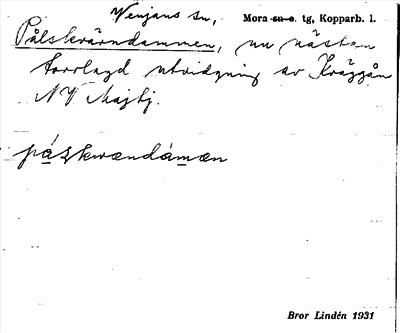 Venjans sn, Mora sn o. tg, Kopparb. l.
Pålskvärndammen, nu nästan
torrlagd utvidgning av Kräggån
NV Majbj.
pǻskwændámæn
Bror Lindén 1931